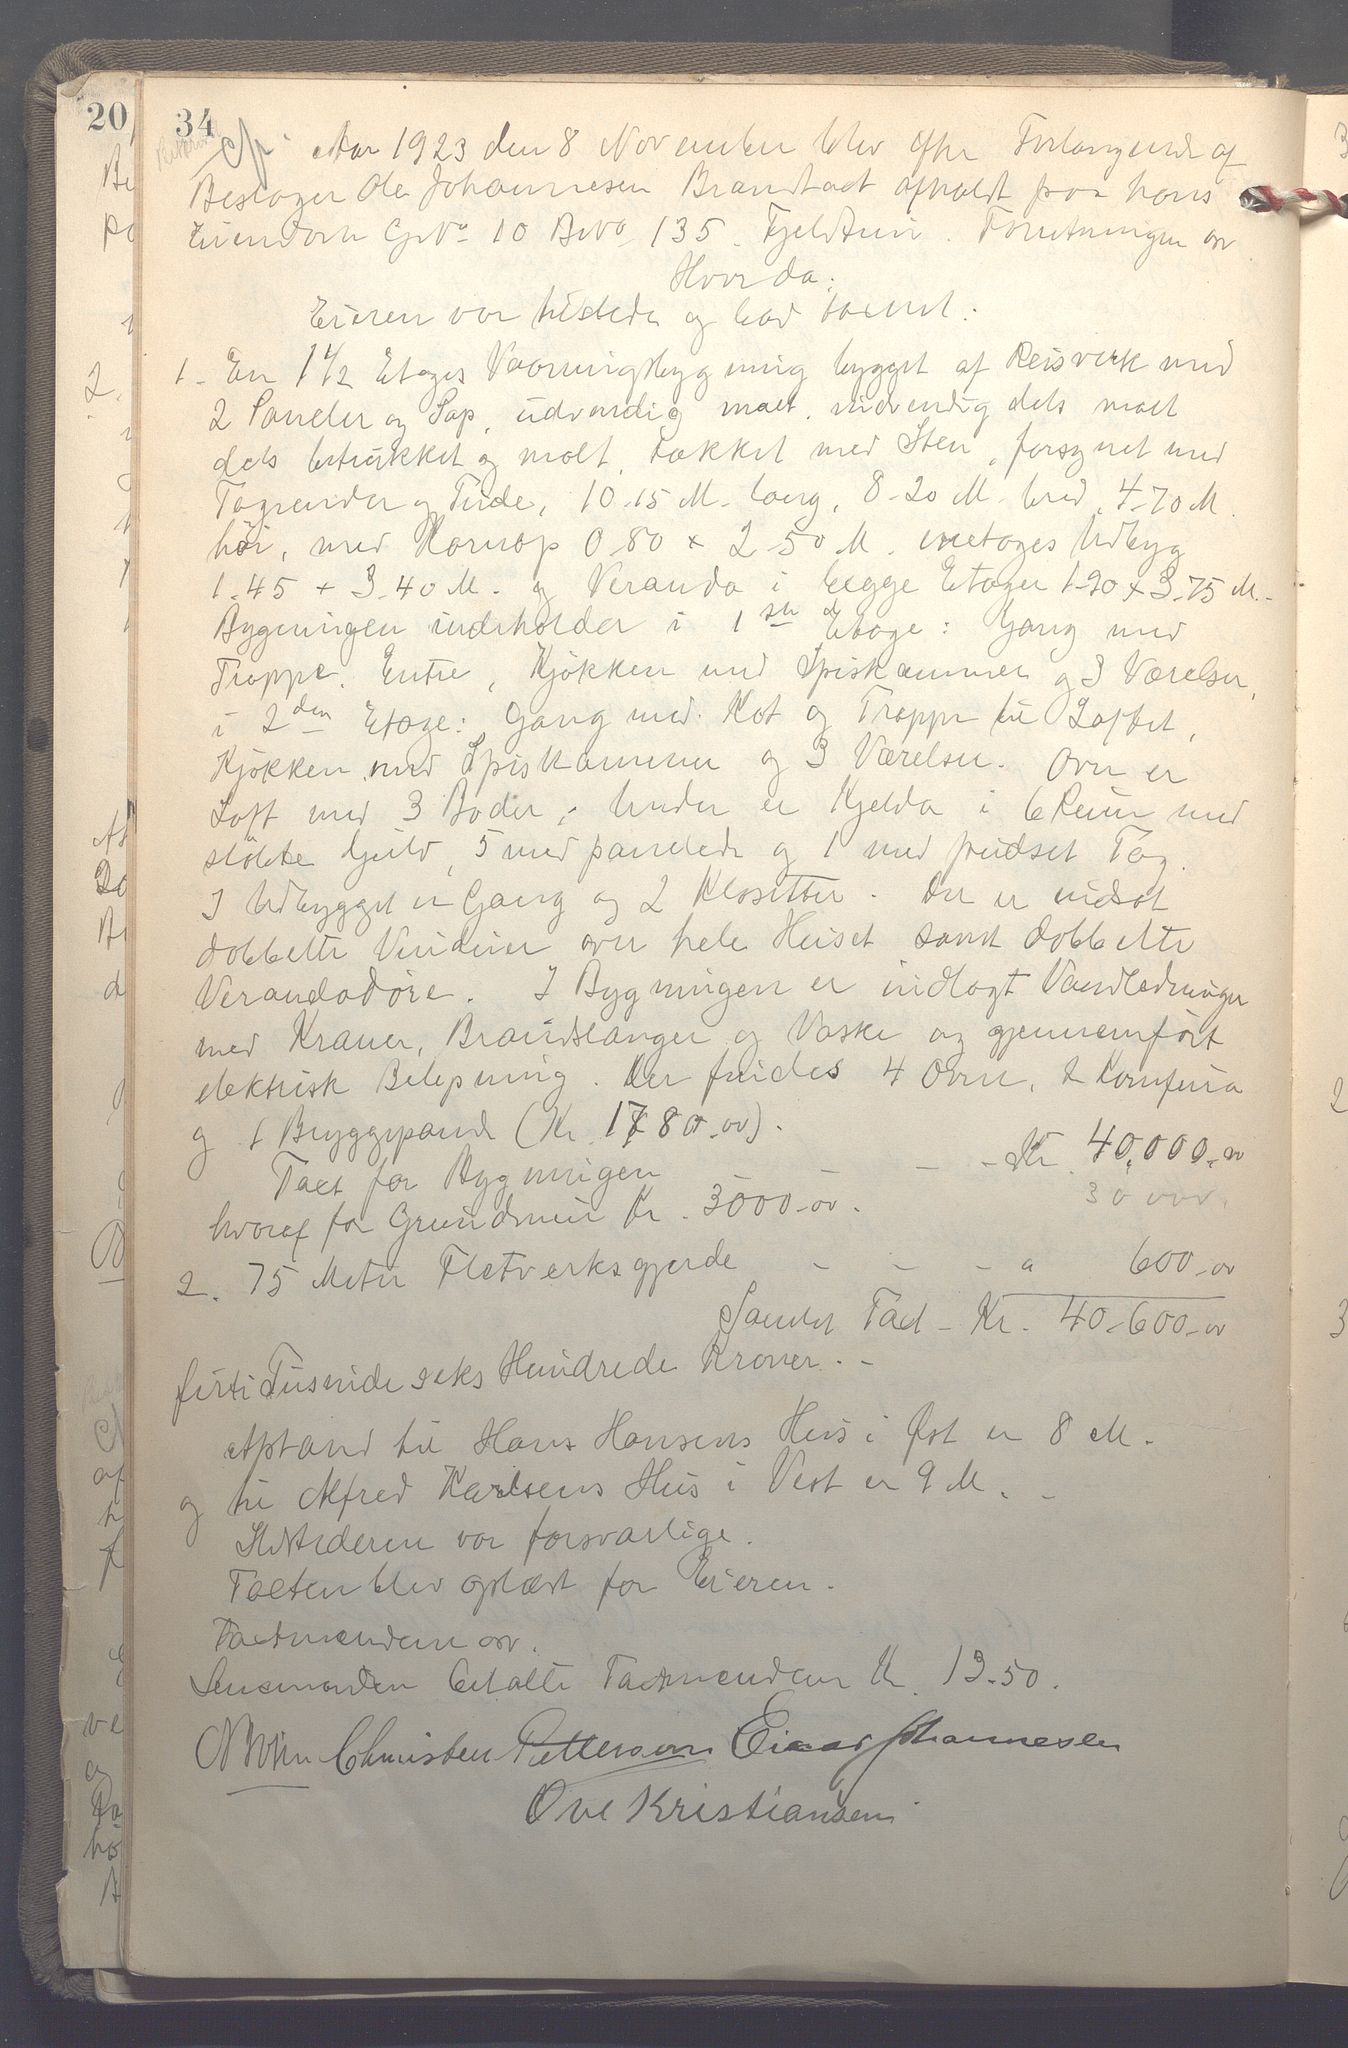 20
34
Aar 1923 den 8 November blev efter Forlangende af
Beslager Ole Johannesen Brandtaet afholdt paa hans
Eiendom Gr No 10 Br No 135. Fjeldtun. Forretningen osv
Hvorda:
Eieren var tilstede og bad taxeret:
1. En 1 1/2 Etages Vaaningsbygning bygget af Reisverk med
2 Paneler og Pap, udvendig malt, indvendig dels malt
dels betrukket og malt, tækket med Sten, forsynet med
Tagrender og Nede, 10.15 M. lang, 8-20 M. bred, 4-70 M.
høi, med Karnap 0.80 x 2.50 M. enetages Udbyg
1.45 + 3.40 M. og Veranda i begge Etager 1-90 x 3.75 M.-
Bygningen indeholder i 1ste Etage: Gang med
Trappe, Entre, Kjøkken med Spiskammer og 3 Værelser,
i 2den Etage: Gang med Kot og Trappe til Loftet,
Kjøkken med Spiskammer og 3 Værelser. Over er
Loft med 3 Boder; Under er Kjelder i 6 Rum med
støbte Gulv, 5 med panelede og 1 med pudset Tag.
I Udbygget er Gang og 2 Klosetter. Der er indsat
dobbelte Vinduer over hele Huset samt dobbelte
Verandadøre. I Bygningen er indlagt Vandledninger
med Kraner, Brandslanger og Vaske og gjennemført
elektrisk Belysning. Der findes 4 Ovne, 2 Komfurer
og 1 Bryggepande (Kr. 1780.00).
Taxt for Bygningen - - - - Kr. 40,000.00
hvoraf for Grundmur Kr. 3000.00. 30 000.
2. 75 Meter Fletverksgjerde - - - a 600.00
Samlet Taxt - Kr. 40-600-00
firti Tusinde seks Hundrede Kroner. -
Afstand til Hans Hansens Hus i Øst er 8 M.
og til Alfred Karlsens Hus i Vest er 9 M. -
Ildstederne var forsvarlige.
Taxten blev oplæst for Eieren.
Taxtmændene osv.
Lensmanden betalte Taxtmændene Kr. 13-50.
Christen Pettersen Einar Johannesen
Ove Kristiansen